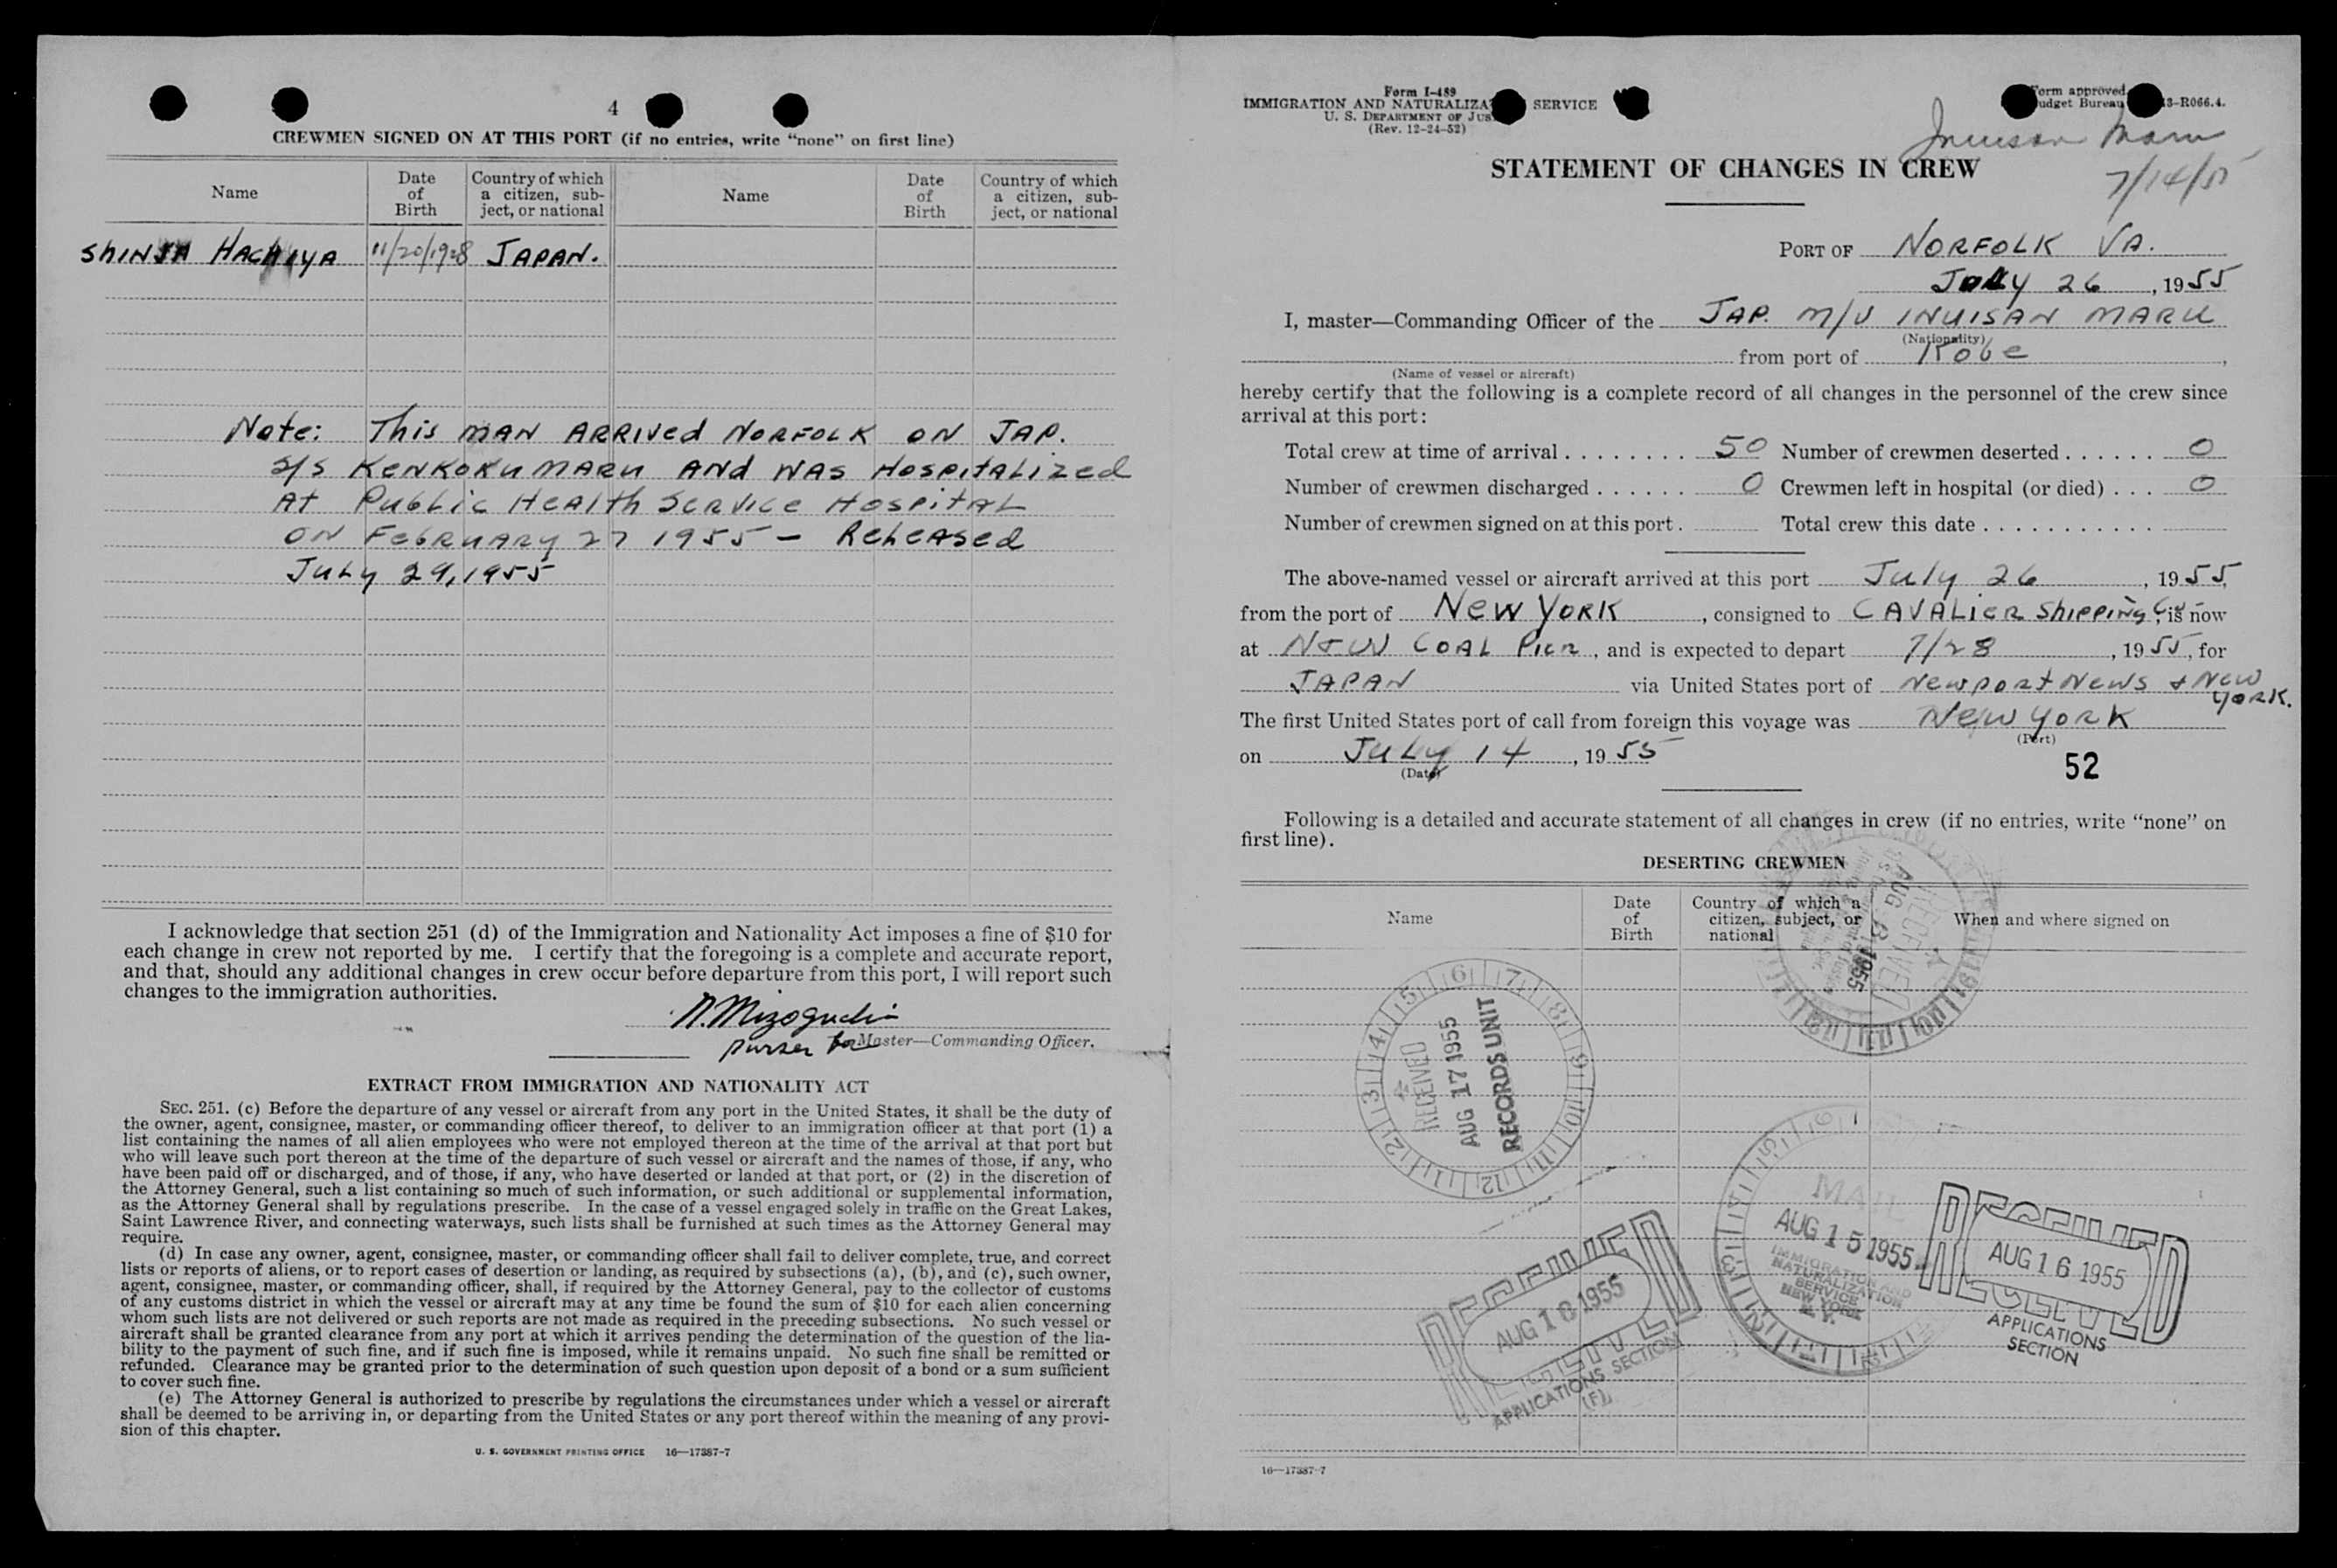 4
CREWMEN SIGNED ON AT THIS PORT (if no entries, write “none” on first line)
Name
Date of Birth
Country of which a citizen, subject, or national
Name
Date of Birth
Country of which a citizen, sub-ject, or national
HACHIYA 11/20/1928 JAPAN.
Note: This MAN ARRIVed NORFOLK ON JAP.
S/S KENKOKU MARU ANd WAS HospitALized
At Public HeAlth SERVICe HospitAL
ON FebRuARy 27 1955 – ReLeASed
JuLy 29, 1955
I acknowledge that section 251 (d) of the Immigration and Nationality Act imposes a fine of $10 for
each change in crew not reported by me. I certify that the foregoing is a complete and accurate report,
and that, should any additional changes in crew occur before departure from this port, I will report such
changes to the immigration authorities.
N. Mizoguchi
purser for Master—Commanding Officer.
EXTRACT FROM IMMIGRATION AND NATIONALITY ACT
SEC. 251. (c) Before the departure of any vessel or aircraft from any port in the United States, it shall be the duty of
the owner, agent, consignee, master, or commanding officer thereof, to deliver to an immigration officer at that port (1) a
list containing the names of all alien employees who were not employed thereon at the time of the arrival at that port but
who will leave such port thereon at the time of the departure of such vessel or aircraft and the names of those, if any, who
have been paid off or discharged, and of those, if any, who have deserted or landed at that port, or (2) in the discretion of
the Attorney General, such a list containing so much of such information, or such additional or supplemental information,
as the Attorney General shall by regulations prescribe. In the case of a vessel engaged solely in traffic on the Great Lakes,
Saint Lawrence River, and connecting waterways, such lists shall be furnished at such times as the Attorney General may
require.
(d) In case any owner, agent, consignee, master, or commanding officer shall fail to deliver complete, true, and correct
lists or reports of aliens, or to report cases of desertion or landing, as required by subsections (a), (b), and (c), such owner,
agent, consignee, master, or commanding officer, shall, if required by the Attorney General, pay to the collector of customs
of any customs district in which the vessel or aircraft may at any time be found the sum of $10 for each alien concerning
whom such lists are not delivered or such reports are not made as required in the preceding subsections. No such vessel or
aircraft shall be granted clearance from any port at which it arrives pending the determination of the question of the lia-
bility to the payment of such fine, and if such fine is imposed, while it remains unpaid. No such fine shall be remitted or
refunded. Clearance may be granted prior to the determination of such question upon deposit of a bond or a sum sufficient
to cover such fine.
(e) The Attorney General is authorized to prescribe by regulations the circumstances under which a vessel or aircraft
shall be deemed to be arriving in, or departing from the United States or any port thereof within the meaning of any provi-
sion of this chapter.
U. S. GOVERNMENT PRINTING OFFICE 16—17387-7
Form I-489
IMMIGRATION AND NATURALIZA SERVICE
U. S. DEPARTMENT OF JUS
(Rev. 12-24-52)
Form approved.
udget Bureau 3-R066.4.
Maru
7/14/55
STATEMENT OF CHANGES IN CREW
PORT OF NORFOLK VA.
JULY 26, 1955
I, master—Commanding Officer of the JAP. M/V INUISAN MARU
(Nationality)
from port of Kobe,
(Name of vessel or aircraft)
hereby certify that the following is a complete record of all changes in the personnel of the crew since
arrival at this port:
Total crew at time of arrival 50 Number of crewmen deserted 0
Number of crewmen discharged 0 Crewmen left in hospital (or died) 0
Number of crewmen signed on at this port. Total crew this date
The above-named vessel or aircraft arrived at this port July 26, 1955,
from the port of New York, consigned to CAVALIER Shipping Co, is now
at N&W COAL Pier, and is expected to depart 7/28, 1955, for
JAPAN via United States port of Newport News & New York.
The first United States port of call from foreign this voyage was New York
(Port)
on JuLy 14, 1955
(Date)
52
Following is a detailed and accurate statement of all changes in crew (if no entries, write “none” on
first line).
DESERTING CREWMEN
Name
Date of Birth
Country of which a citizen, subject, or national
When and where signed on
RECEIVED
AUG 8 1955
RECEIVED
AUG 17 1955
RECORDS UNIT
MAIL
AUG 15 1955
IMMIGRATION AND
NATURALIZATION
SERVICE
NEW YORK
N. Y.
RECEIVED
AUG 16 1955
APPLICATIONS
SECTION
RECEIVED
AUG 18 1955
APPLICATIONS SECTION
(F)
16—17387-7